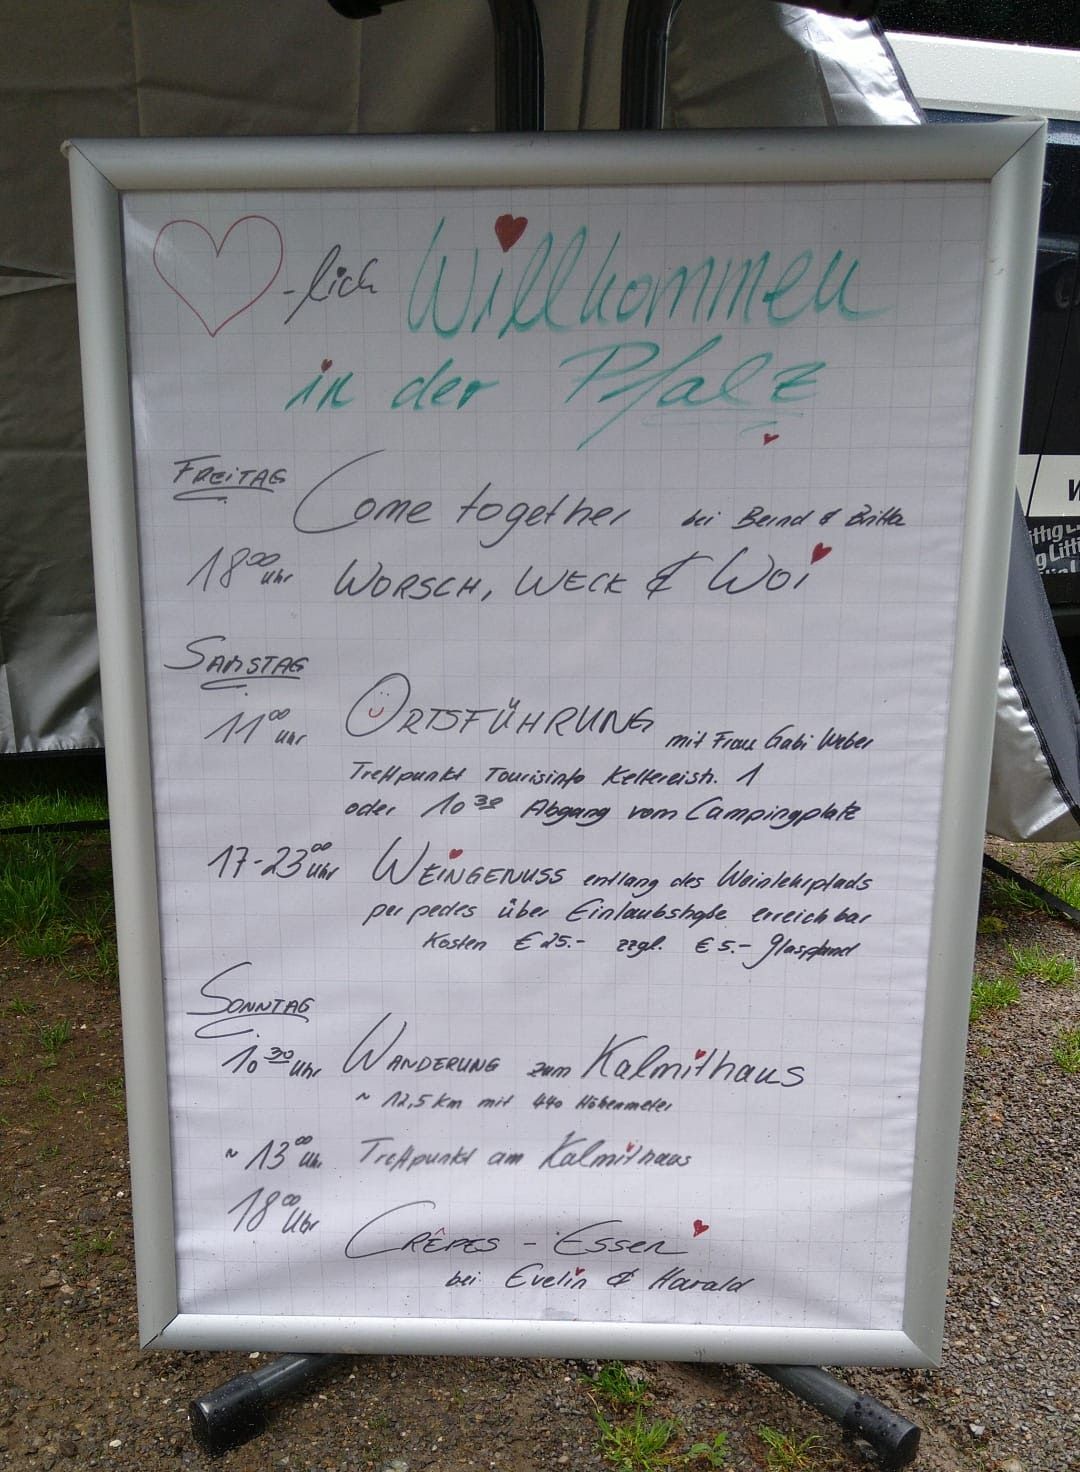 -lich Willkommen
in der Pfalz
FREITAG
Come together bei Bernd & Britta
18⁰⁰ Uhr WORSCH, WECK & WOI
SAMSTAG
11⁰⁰ Uhr ORTSFÜHRUNG mit Frau Gabi Weber
Treffpunkt Tourisinfo Kellereistr. 1
oder 10³⁰ Abgang vom Campingplatz
17-23⁰⁰ Uhr WEINGENUSS entlang des Weinlehrpfads
per pedes über Einlaubstraße erreichbar
Kosten € 25.- zzgl. € 5.- Glaspfand
SONNTAG
10³⁰ Uhr WANDERUNG zum Kalmithaus
~ 12,5 km mit 440 Höhenmeter
~ 13⁰⁰ Uhr Treffpunkt am Kalmithaus
18⁰⁰ Uhr
CRÊPES - ESSEN
bei Evelin & Harald